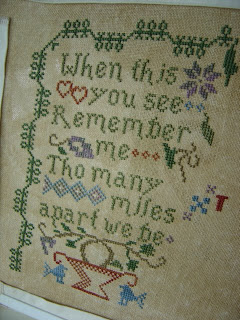 When this
you see
Remember
me
Tho many
miles
apart we be